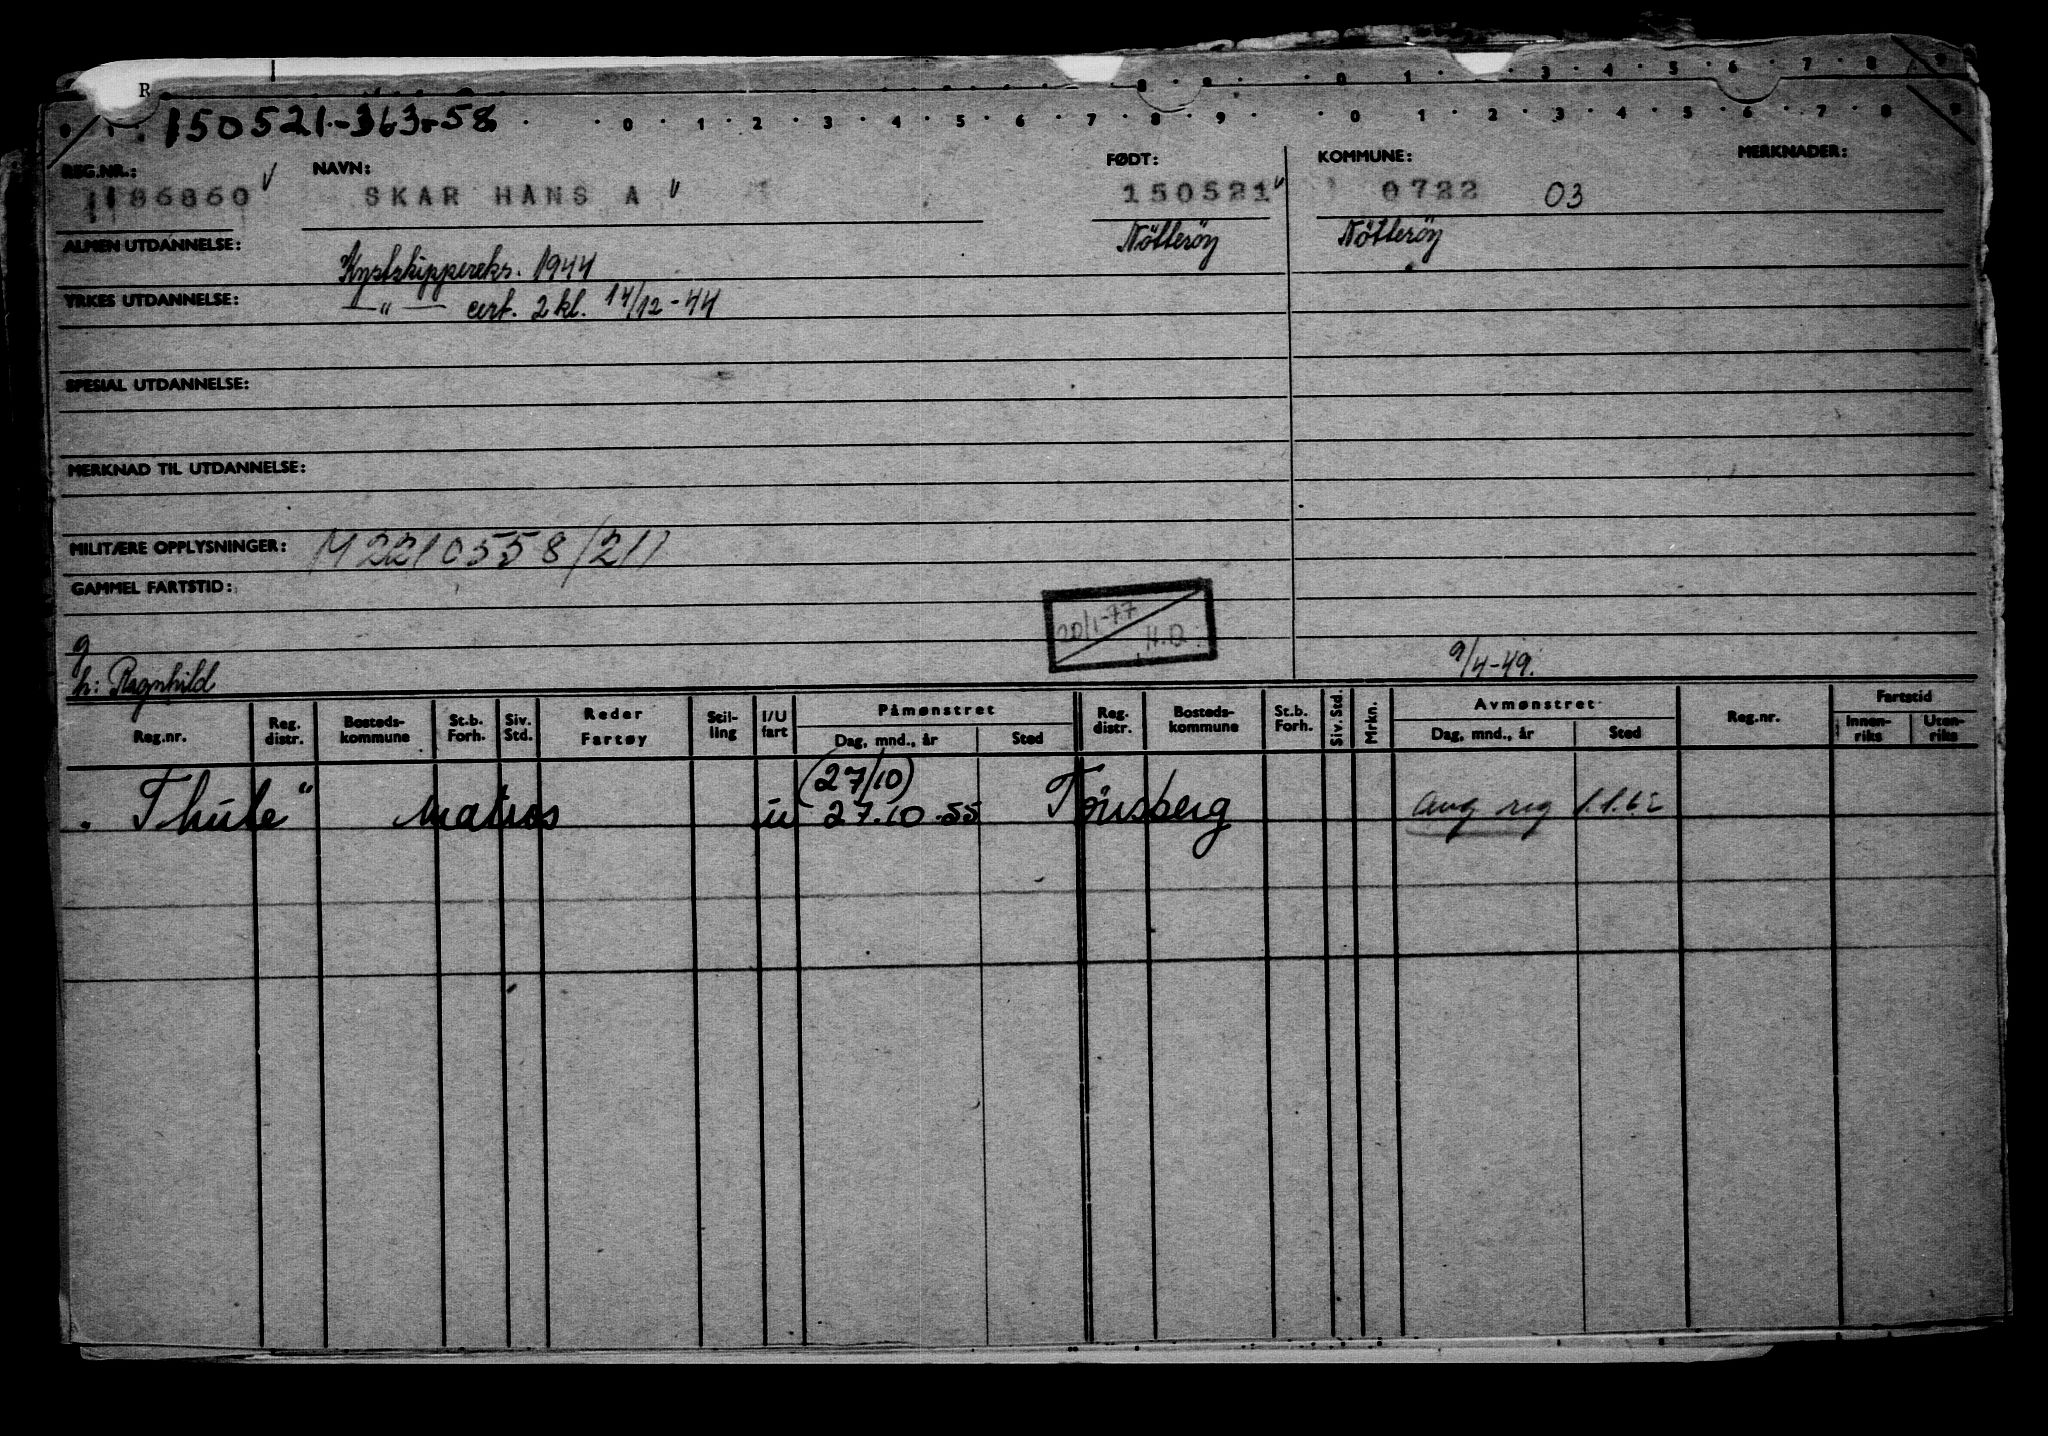 R
150521-363-58
0 1 2 3 4 5 6 7 8 9 0 1 2 3 4 5 6 7 8
REG.NR.: NAVN: FØDT: KOMMUNE: MERKNADER:
186860 SKAR HANS A 150521 0722 03
ALMEN UTDANNELSE: Kystskippereks. 1944 Nötteröy Nötteröy
YRKES UTDANNELSE: —"— cert. 2 kl. 14/12-44
SPESIAL UTDANNELSE:
MERKNAD TIL UTDANNELSE:
MILITÆRE OPPLYSNINGER: M2210558/21
GAMMEL FARTSTID:
20/1-77
H.O.
g
h: Ragnhild 9/4-49.
Reg.nr. Reg. distr. Bosteds-kommune St.b. Forh. Siv. Std. Reder Fartøy Stil-ling I/U fart Påmønstret Dag, mnd., år Sted Reg. distr. Bosteds-kommune St.b. Forh. Siv. Std. Mrkn. Avmønstret Dag, mnd., år Sted Reg.nr. Fartstid Innen-riks Uten-riks
(27/10)
"Thule" Matros u 27.10.55 Tönsberg avg reg 1.1.62